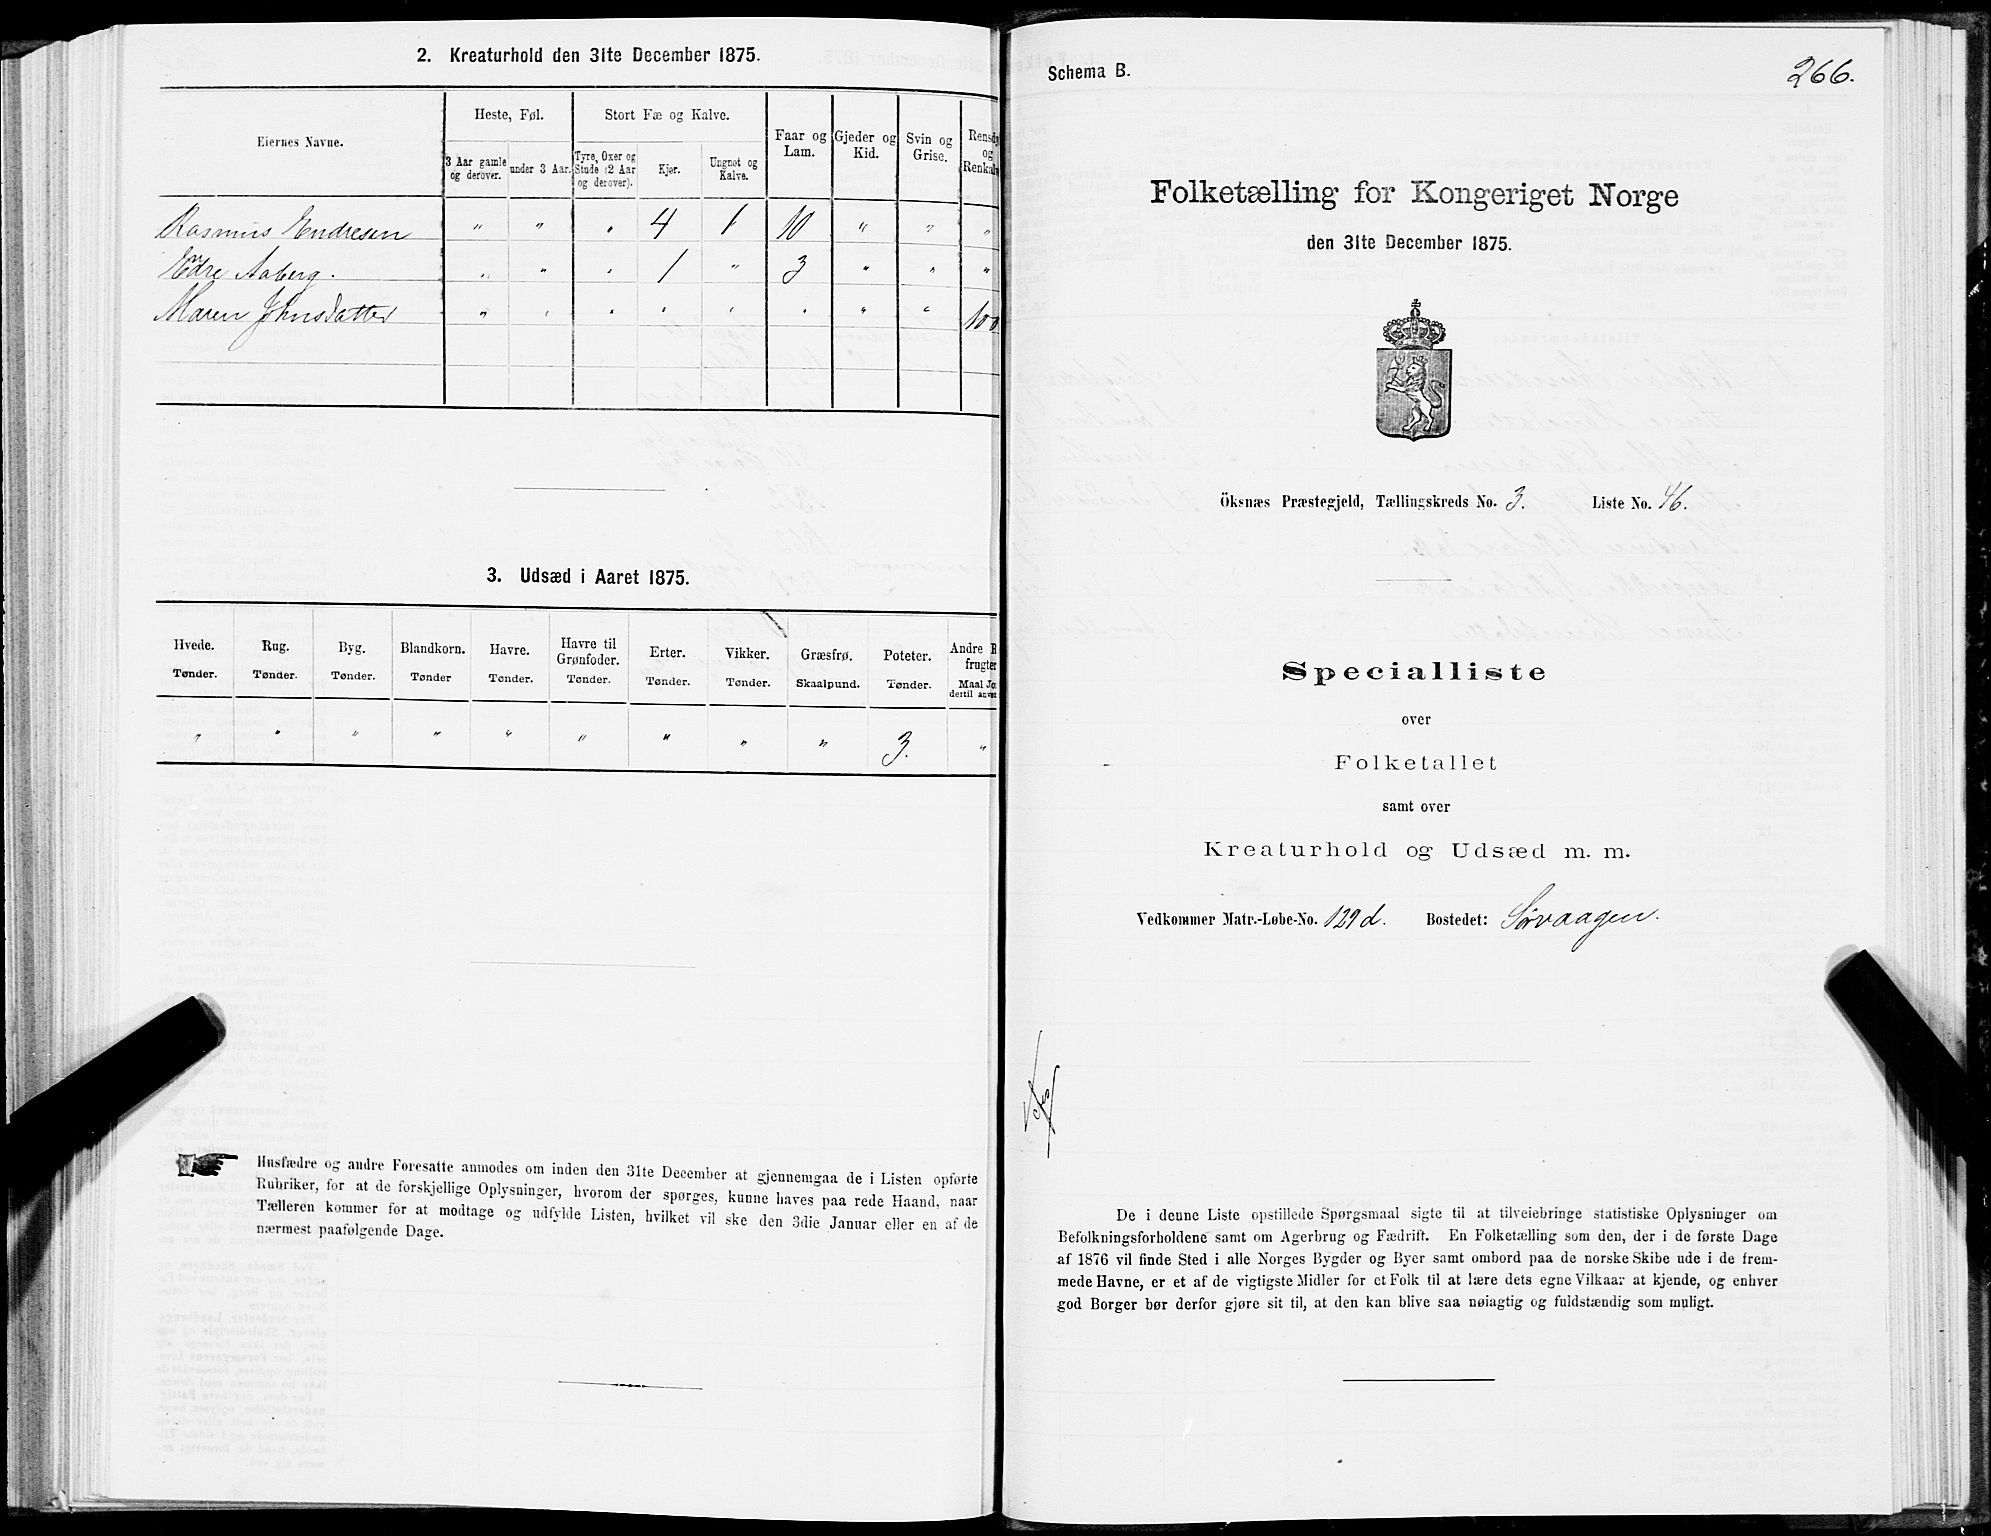 2. Kreaturhold den 31te December 1875.
Eiernes Navne.
Heste, Føl.
Stort Fæ og Kalve.
Faar og Lam.
Gjeder og Kid.
Svin og Grise.
Rensdy
og
Renkalv
3 Aar gamle og derover.
under 3 Aar.
Tyre, Oxer og Stude (2 Aar og derover).
Kjør.
Ungnøt og Kalve.
Rasmus Endresen " " " 4 1 10 " " "
Endre Aaberg. " " " 1 " 3 " " "
Maren Johnsdatter " " " " " " " " 100
3. Udsæd i Aaret 1875.
Hvede. Rug. Byg. Blandkorn. Havre. Havre til Grønfoder. Erter. Vikker. Græsfrø. Poteter. Andre R
frugter
Tønder. Tønder. Tønder. Tønder Tønder. Tønder. Tønder. Tønder. Skaalpund. Tønder. Maal Jo
dertil anve
" " " " " " " " " 3. "
Husfædre og andre Foresatte anmodes om inden den 31te December at gjennemgaa de i Listen opførte
Rubriker, for at de forskjellige Oplysninger, hvorom der spørges, kunne haves paa rede Haand, naar
Tælleren kommer for at modtage og udfylde Listen, hvilket vil ske den 3die Januar eller en af de
nærmest paafølgende Dage.
Schema B.
266.
Folketælling for Kongeriget Norge
den 31te December 1875.
Öksnæs Præstegjeld, Tællingskreds No. 3. Liste No. 46.
Specialliste
over
Folketallet
samt over
Kreaturhold og Udsæd m. m.
Vedkommer Matr.-Løbe-No. 129 d. Bostedet: Sørvaagen.
De i denne Liste opstillede Spørgsmaal sigte til at tilveiebringe statistiske Oplysninger om
Befolkningsforholdene samt om Agerbrug og Fædrift. En Folketælling som den, der i de første Dage
af 1876 vil finde Sted i alle Norges Bygder og Byer samt ombord paa de norske Skibe ude i de frem-
mede Havne, er et af de vigtigste Midler for et Folk til at lære dets egne Vilkaar at kjende, og enhver
god Borger bør derfor gjøre sit til, at den kan blive saa nøiagtig og fuldstændig som muligt.